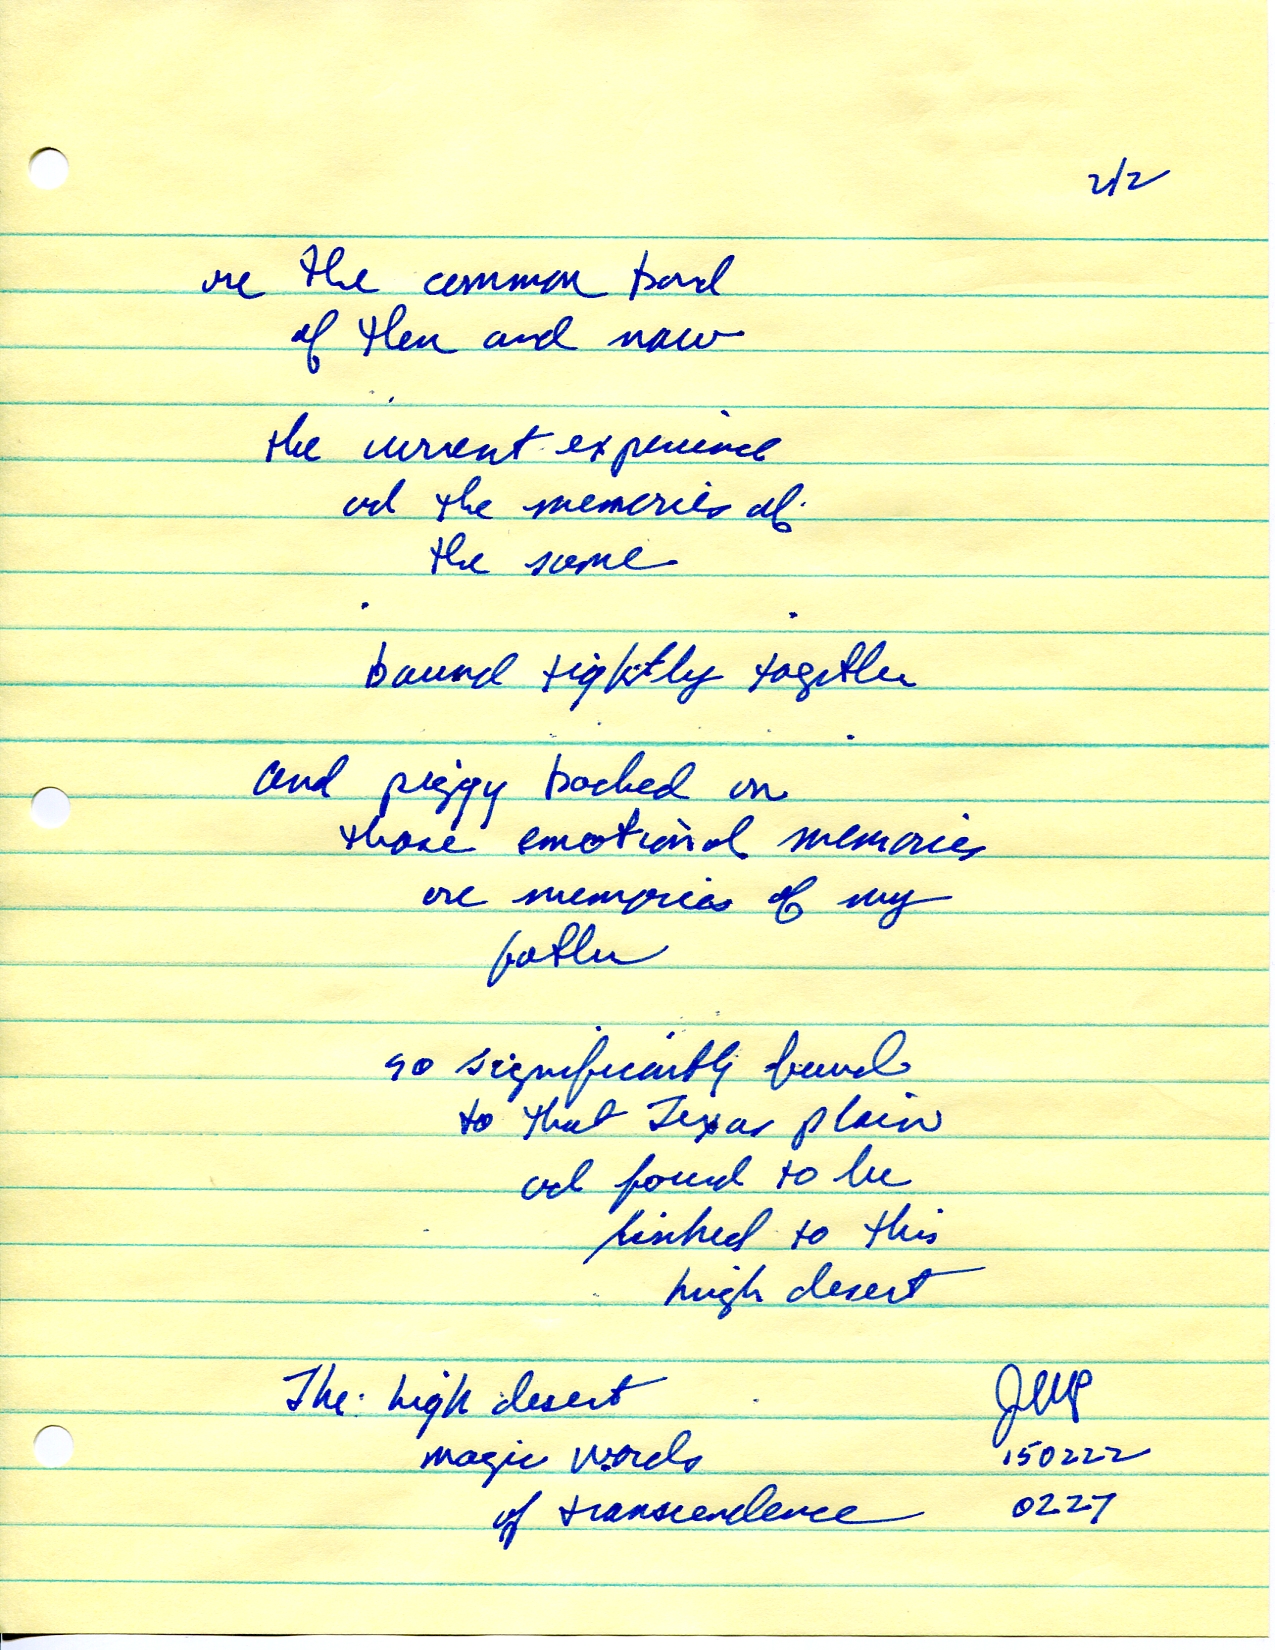 2/2
are the common bond
of then and now
the current experience
and the memories of
the same
bound tightly together
and piggy backed on
those emotional memories
are memories of my
father
so significantly found
to that Texas plain
and found to be
linked to this
high desert
The high desert
magic words
of transcendence
JWP
150222
0227